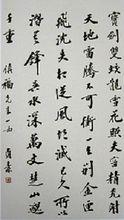 寶劍雙蛟龍雪花照芙蓉精光射
天地雷騰不可衝一去別金匣
飛沈失相從風胡滅已久所以
潛其鋒吳水深萬丈楚山邈
千重 先生